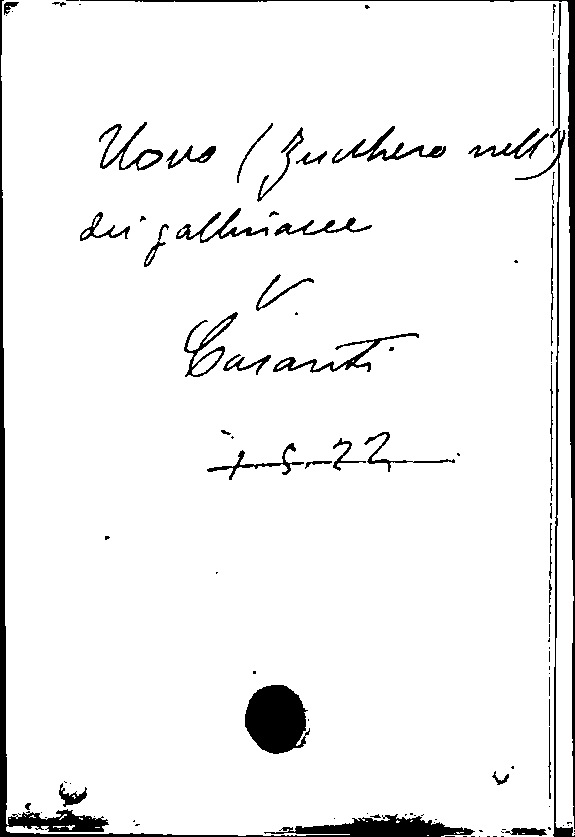 Uovo (Zucchero nell')
dei gallinacee
V
Casanti
+ 5. 22